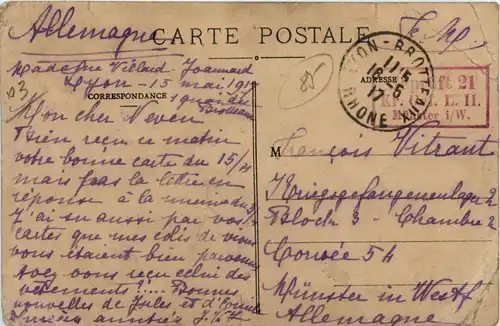 Allemagne
CARTE POSTALE
F. M.
Madame Villard Joannard
Lyon - 15 mai 1917
1 grande
Brotteaux
103
85
CORRESPONDANCE
ADRESSE
LYON-BROTTEAUX
11 45
16-5
17
RHONE
21
Kr. L. II.
Münster i/W.
Mon cher Neveu
Bien reçu ce matin
votre bonne carte du 15/4
mais pas la lettre en
réponse à la mienne du
J'ai su aussi par vos
cartes que mes colis de
vous étaient bien parvenus
Avez vous reçu celui des
vêtements?... Bonnes
nouvelles de Jules et d'
amitiés J. V. J.
M François Vitrant
Kriegsgefangenenlager 2
Block 3 - Chambre 2
Corvée 54
Münster in Westf
Allemagne